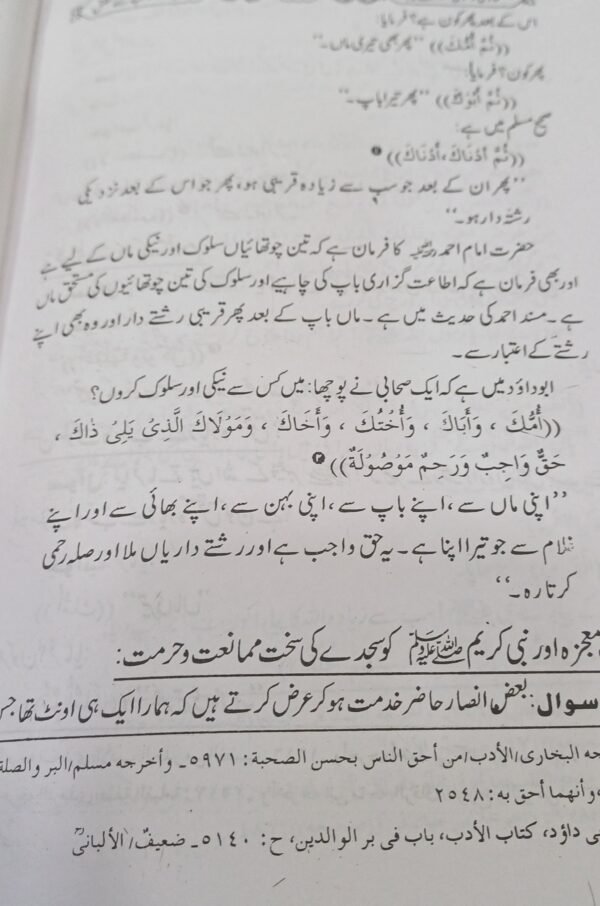 اس کے بعد پھر کون ہے؟ فرمایا:
((ثُمَّ أُمُّكَ)) ”پھر بھی تیری ماں۔“
پھر کون؟ فرمایا:
((ثُمَّ أَبُوْكَ)) ”پھر تیرا باپ۔“
صحیح مسلم میں ہے:
((ثُمَّ أَدْنَاكَ، أَدْنَاكَ)) ❶
”پھر ان کے بعد جو سب سے زیادہ قریبی ہو، پھر جو اس کے بعد نزدیکی
رشتہ دار ہو۔“
حضرت امام احمد رحمہ اللہ کا فرمان ہے کہ تین چوتھائیاں سلوک اور نیکی ماں کے لیے ہے
اور بھی فرمان ہے کہ اطاعت گزاری باپ کی چاہیے اور سلوک کی تین چوتھائیوں کی مستحق ماں
ہے۔ مسند احمد کی حدیث میں ہے۔ ماں باپ کے بعد پھر قریبی رشتے دار اور وہ بھی اپنے
رشتے کے اعتبار سے۔
ابوداؤد میں ہے کہ ایک صحابی نے پوچھا: میں کس سے نیکی اور سلوک کروں؟
((أُمُّكَ ، وَأَبَاكَ ، وَأُخْتُكَ ، وَأَخَاكَ ، وَمَوْلَاكَ الَّذِيْ يَلِىْ ذَاكَ ،
حَقٌّ وَاجِبٌ وَرَحِمٌ مَوْصُوْلَةٌ)) ❷
”اپنی ماں سے، اپنے باپ سے، اپنی بہن سے، اپنے بھائی سے اور اپنے
غلام سے جو تیرا اپنا ہے۔ یہ حق واجب ہے اور رشتے داریاں ملا اور صلہ رحمی
کرتا رہ۔“
معجزہ اور نبی کریم ﷺ کو سجدے کی سخت ممانعت و حرمت:
سوال: بعض انصار حاضر خدمت ہو کر عرض کرتے ہیں کہ ہمارا ایک ہی اونٹ تھا جس
البخاری/الأدب/من أحق الناس بحسن الصحبة: ٥٩٧١۔ وأخرجه مسلم/البر والصلة
، وأنهما أحق به: ٢٥٤٨
داؤد، كتاب الأدب، باب فی بر الوالدين، ح: ٥١٤٠۔ ضعيفٌ/الألبانیؒ